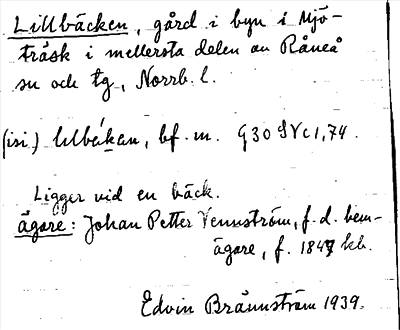 Lillbäcken, gård i byn i Mjö-
träsk i mellersta delen av Råneå
sn och tg, Norrb. l.
(isi.) lilbäkan, bf. m. G 30 S Vc 1,74.
Ligger vid en bäck.
Ägare: Johan Petter Vennström, f.d. hem-
ägare, f. 1847 kb.
Edvin Brännström 1939.